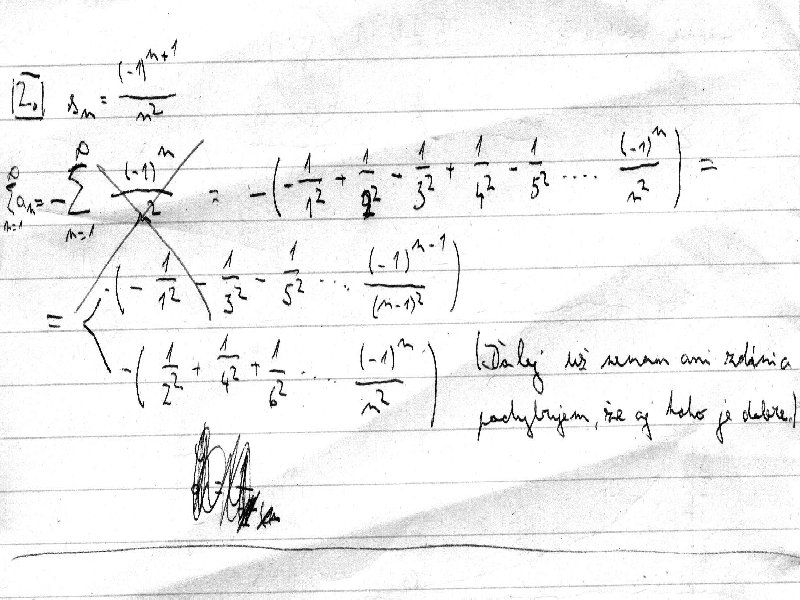 2. sₙ = (-1)^(n+1) / n²
∞∑n=1 aₙ = - ∞∑n=1 (-1)^n / n² = -( - 1/1² + 1/2² - 1/3² + 1/4² - 1/5² .... (-1)^n / n² ) =
= -( - 1/1² - 1/3² - 1/5² ... (-1)^(n-1) / (n-1)² )
-( 1/2² + 1/4² + 1/6² ... (-1)^n / n² )
(Ďalej už nemam ani zdánia
pochybujem, že aj toto je dobre.)